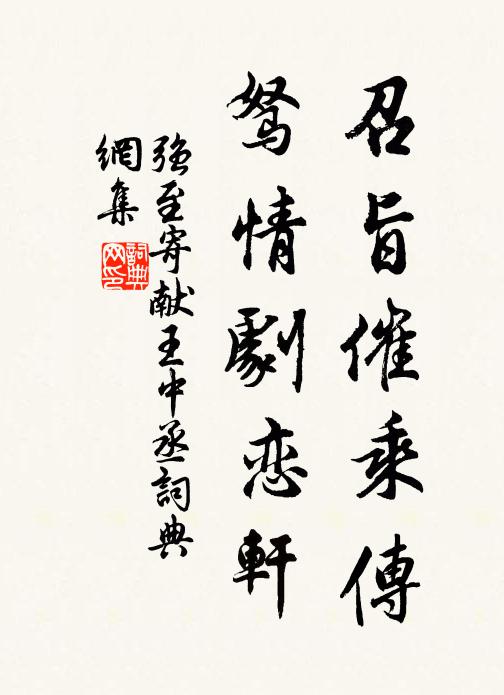 召旨催乘傳
駑情劇恋軒
強至寄献王中丞詞典
網集
詞典网印